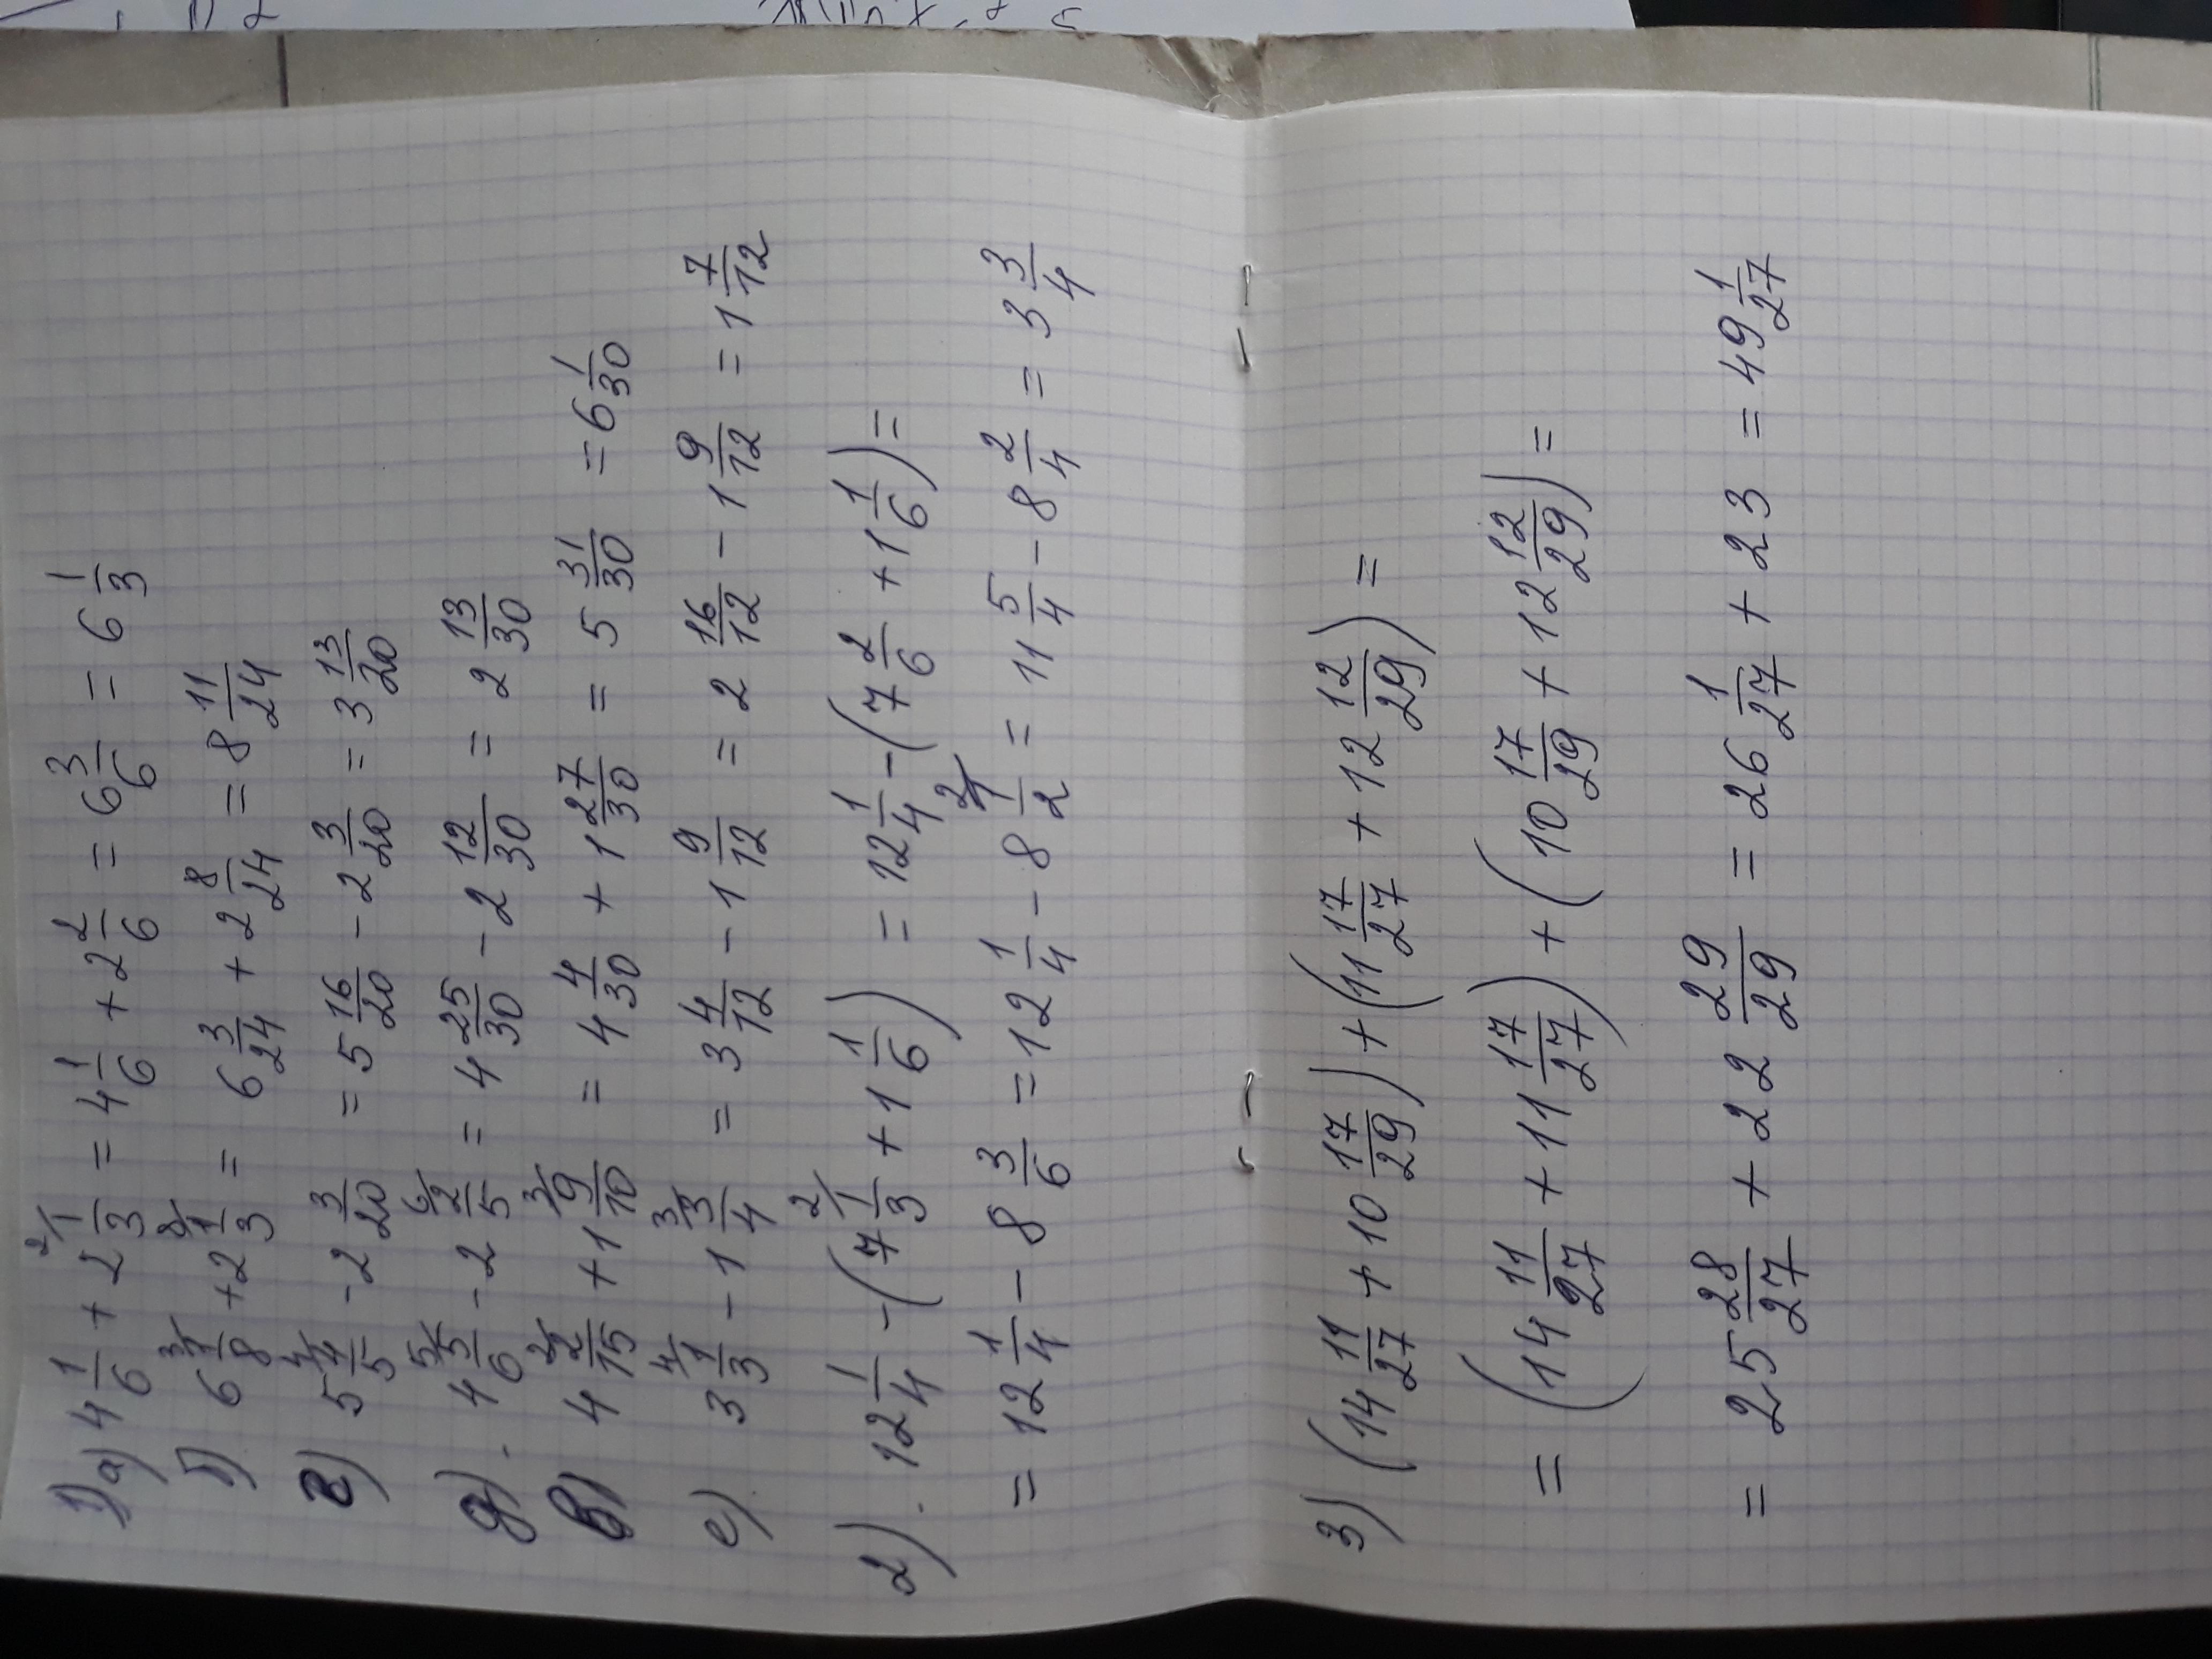 1) а) 4 1/6 + 2 1/3 = 4 1/6 + 2 2/6 = 6 3/6 = 6 1/3
б) 6 1/8 + 2 1/3 = 6 3/24 + 2 8/24 = 8 11/24
г) 5 4/5 - 2 3/20 = 5 16/20 - 2 3/20 = 3 13/20
д) 4 5/6 - 2 2/5 = 4 25/30 - 2 12/30 = 2 13/30
в) 4 2/15 + 1 9/10 = 4 4/30 + 1 27/30 = 5 31/30 = 6 1/30
е) 3 1/3 - 1 3/4 = 3 4/12 - 1 9/12 = 2 16/12 - 1 9/12 = 1 7/12
2) 12 1/4 - (7 1/3 + 1 1/6) = 12 1/4 - (7 2/6 + 1 1/6) =
= 12 1/4 - 8 3/6 = 12 1/4 - 8 1/2 = 11 5/4 - 8 2/4 = 3 3/4
3) (14 11/27 + 10 17/29) + (11 17/27 + 12 12/29) =
= (14 11/27 + 11 17/27) + (10 17/29 + 12 12/29) =
= 25 28/27 + 22 29/29 = 26 1/27 + 23 = 49 1/27